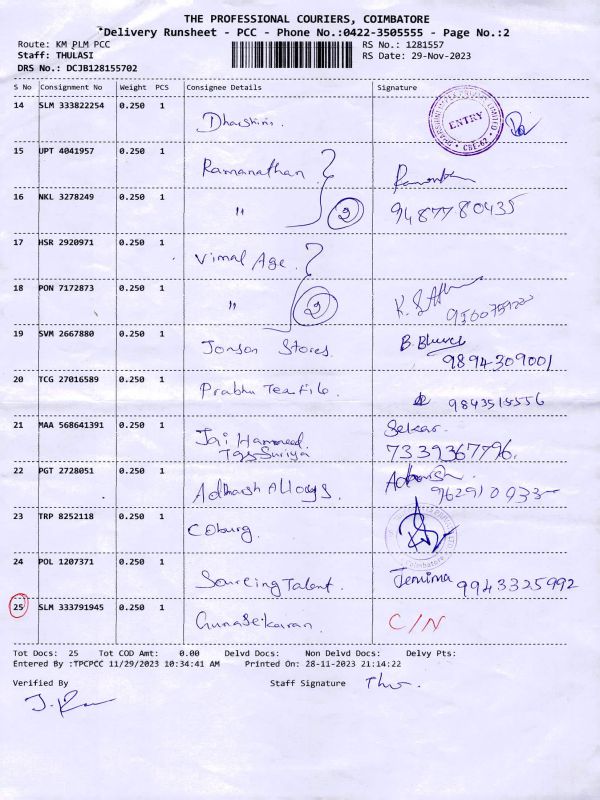 THE PROFESSIONAL COURIERS, COIMBATORE
*Delivery Runsheet - PCC - Phone No.:0422-3505555 - Page No.:2
Route: KM PLM PCC RS No.: 1281557
Staff: THULASI RS Date: 29-Nov-2023
DRS No.: DCJB128155702
S No Consignment No Weight PCS Consignee Details Signature
14 SLM 333822254 0.250 1 Dharshini. ENTRY
15 UPT 4041957 0.250 1 Ramanathan
16 NKL 3278249 0.250 1 " 2 9487780435
17 HSR 2920971 0.250 1 Vimal Age.
18 PON 7172873 0.250 1 " 2
19 SVM 2667880 0.250 1 Jonson Stores. 9894309001
20 TCG 27016589 0.250 1 Prabhu Texfile. 9843515556
21 MAA 568641391 0.250 1 Jai Hammeed. Sekar.
Tgs Suriya 7339367796.
22 PGT 2728051 0.250 1 Adharsh Alloys. Adharsh
23 TRP 8252118 0.250 1 Coburg. Coimbatore
24 POL 1207371 0.250 1 Sourcing Talent. Jemima 9943325992
25 SLM 333791945 0.250 1 Gunasekaran. C/N
Tot Docs: 25 Tot COD Amt: 0.00 Delvd Docs: Non Delvd Docs: Delvy Pts:
Entered By :TPCPCC 11/29/2023 10:34:41 AM Printed On: 28-11-2023 21:14:22
Verified By Staff Signature